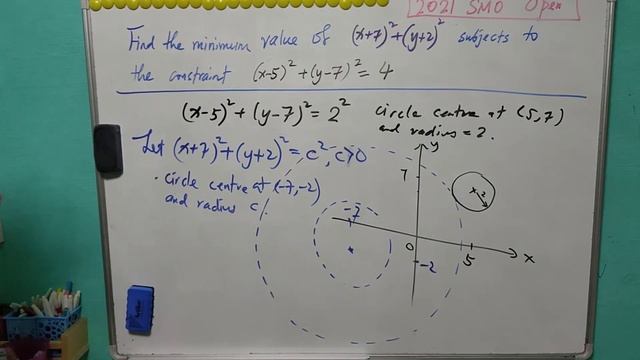 2021 SMO Open
Find the minimum value of (x+7)²+(y+2)² subjects to
the constraint (x-5)²+(y-7)²=4
(x-5)²+(y-7)²=2² circle centre at (5,7)
and radius=2.
Let (x+7)²+(y+2)²=c², c>0
· circle centre at (-7,-2)
and radius c.
y
7
2
-7
0
5
x
-2